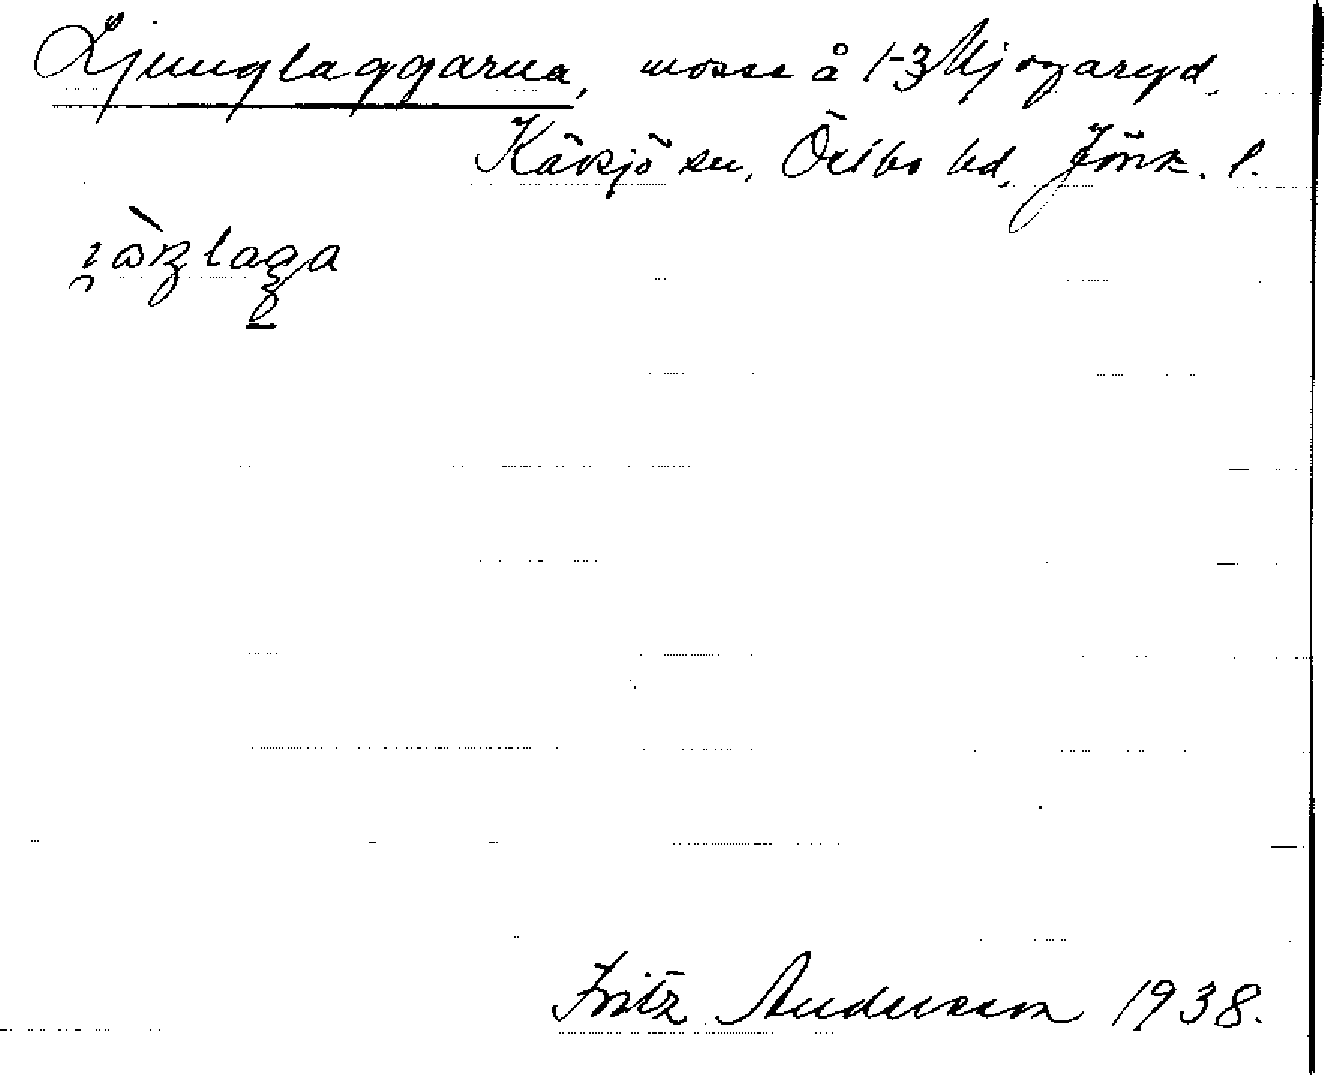 Ljunglaggarna, mosse å 1-3 Mjogaryd,
Kävsjö sn, Östbo hd, Jönk. l.
Fritz Andersson 1938.